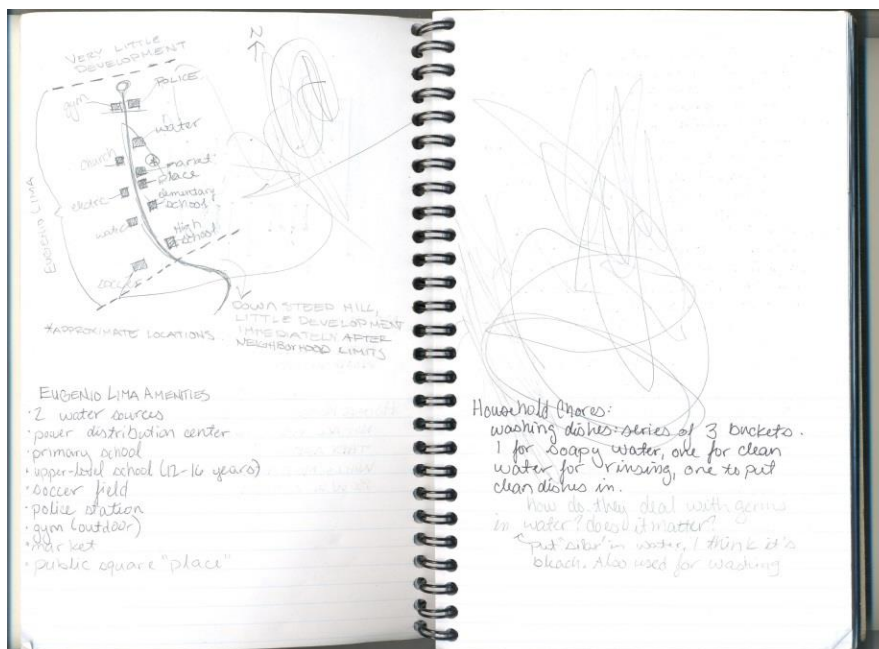 VERY LITTLE
DEVELOPMENT
N
gym
POLICE
water
church
market
place
elementary
school
electric
water
High
school
soccer
EUGENIO LIMA
*APPROXIMATE LOCATIONS
DOWN STEED HILL,
LITTLE DEVELOPMENT
IMMEDIATELY AFTER
NEIGHBORHOOD LIMITS
EUGENIO LIMA AMENITIES
·2 water sources
·power distribution center
·primary school
·upper-level school (12-16 years)
·soccer field
·police station
·gym (outdoor)
·market
·public square "place"
Household Chores:
washing dishes: series of 3 buckets.
1 for soapy water, one for clean
water for rinsing, one to put
clean dishes in.
How do they deal with germs
in water? does it matter?
put in water, I think it's
bleach. Also used for washing